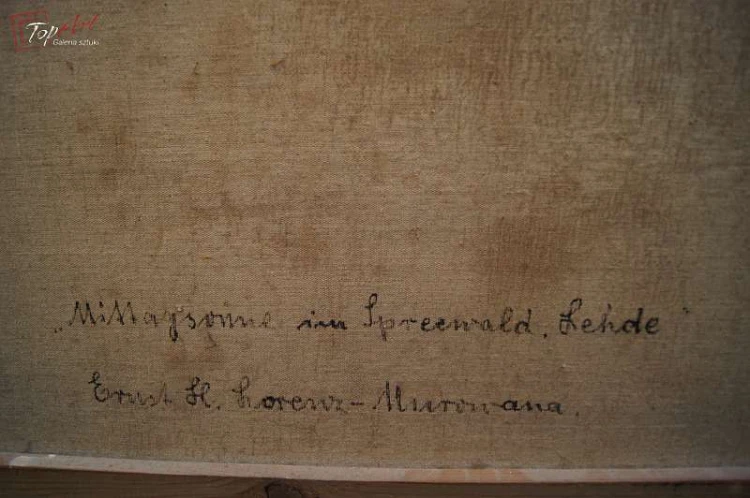 Topart
Galeria sztuki
„Mittagsonne im Spreewald. Lehde"
Ernst H. Lorenz-Murowana.